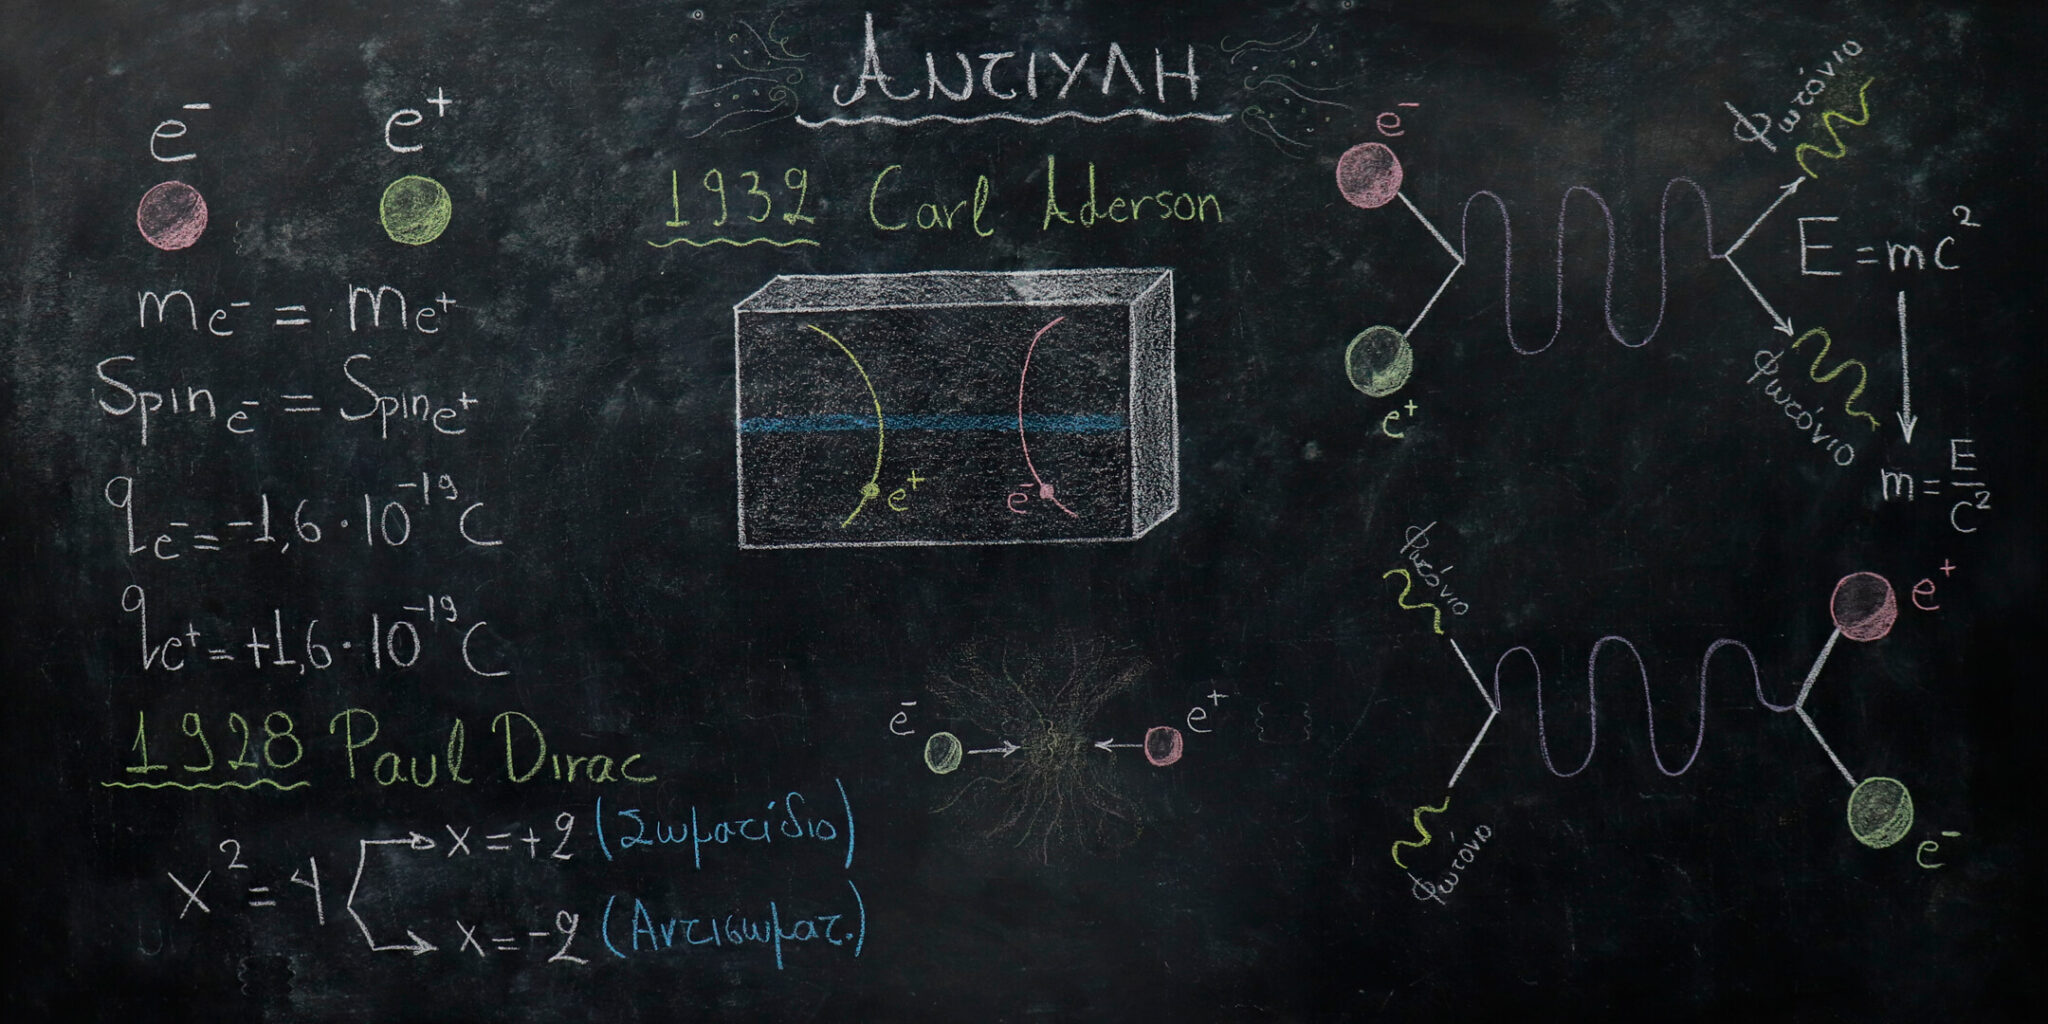 Αντιυλη
e⁻ e⁺
mₑ⁻ = mₑ⁺
Spinₑ⁻ = Spinₑ⁺
qₑ⁻ = -1,6·10⁻¹⁹ C
qₑ⁺ = +1,6·10⁻¹⁹ C
1928 Paul Dirac
x² = 4
x = +2 (Σωματίδιο)
x = -2 (Αντισωματ.)
1932 Carl Aderson
e⁺ e⁻
e⁻ e⁺
e⁻
e⁺
φωτόνιο
φωτόνιο
E = mc²
m = E/c²
φωτόνιο
φωτόνιο
e⁺
e⁻